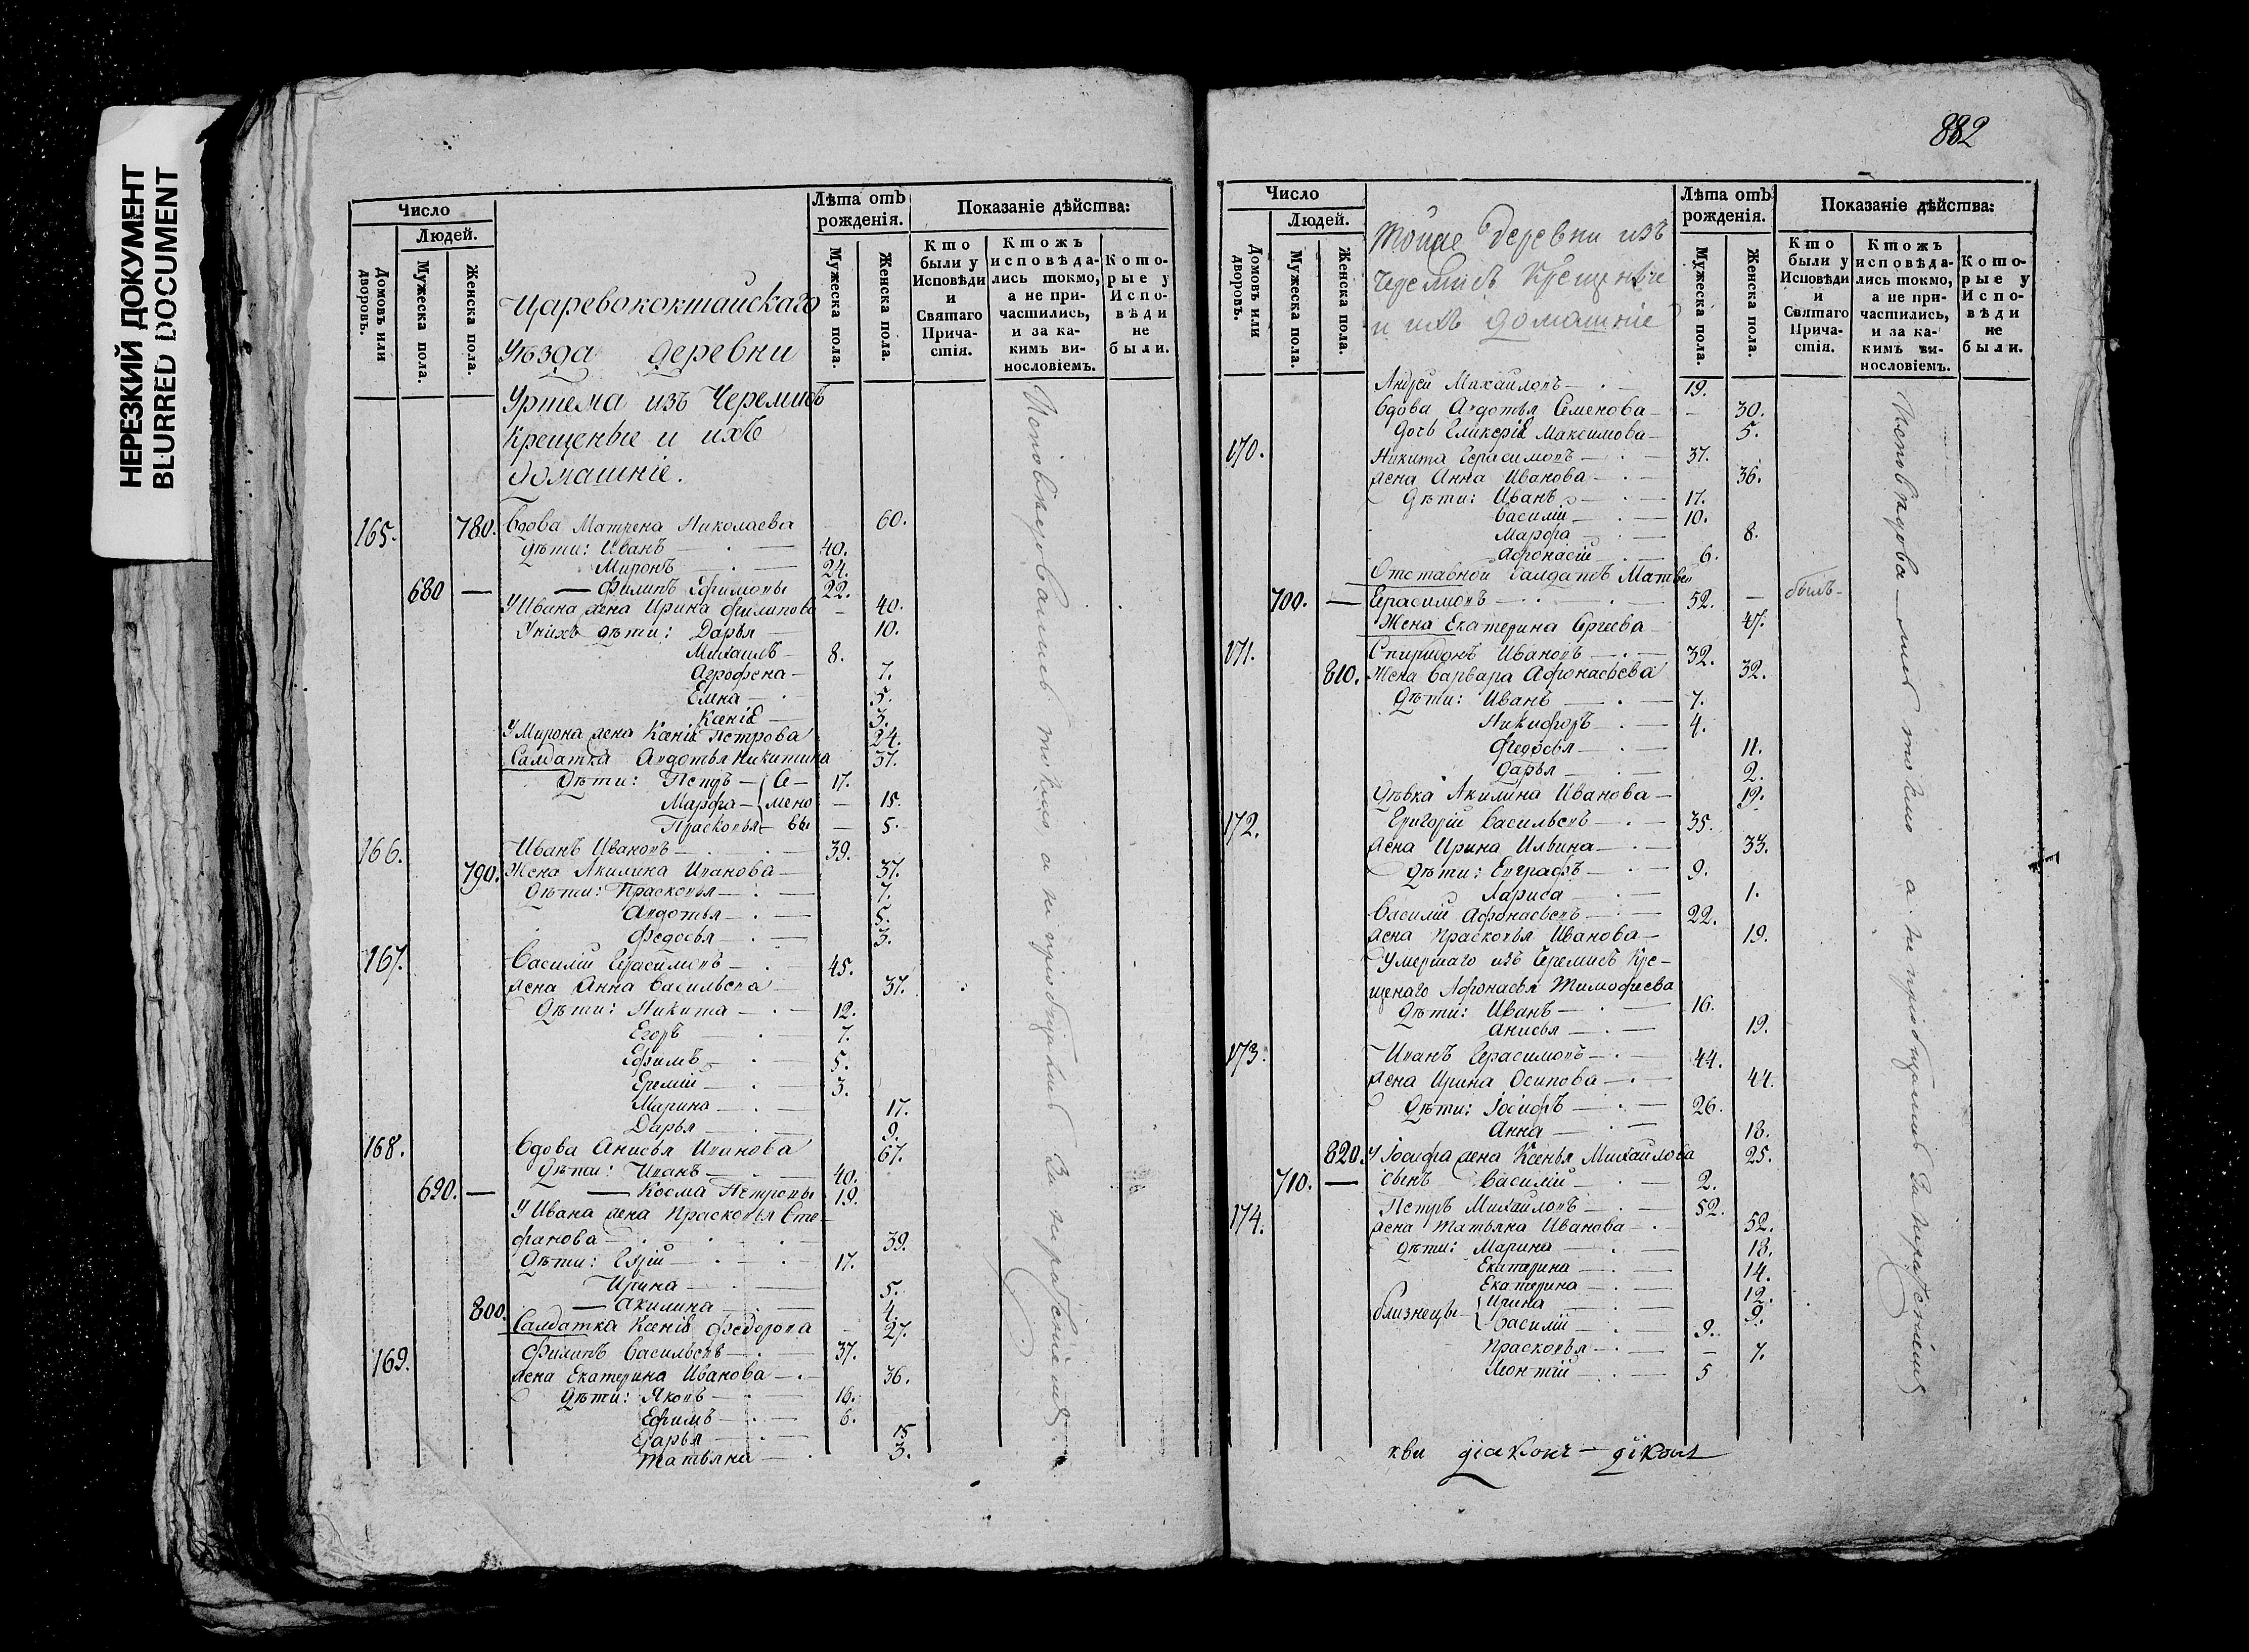 НЕРЕЗКИЙ ДОКУМЕНТ
BLURRED DOCUMENT
Число
Людей.
Домовъ или дворовъ.
Мужеска пола.
Женска пола.
Лѣта отъ рожденія.
Мужеска пола.
Женска пола.
Показаніе дѣйства:
Кто были у Исповѣди и Святаго Прича-стія.
Ктожъ исповѣда-лись токмо, а не при-частились, и за ка-кимъ ви-нословіемъ.
Кото-рые у Испо-вѣди не были.
Царевококшайскаго
Уѣзда деревни
Уртема изъ Черемисъ
Крещеные и ихъ
Домашніе.
165. 780. Вдова Матрена Николаева 60.
Дѣти: Иванъ 40.
Миронъ 24.
680 — Филипъ Ефимовы 22.
У Ивана жена Ирина Филипова — 40.
У нихъ дѣти: Дарья 10.
Михаилъ 8.
Агрофена 7.
Елна 5.
Ксенія 3.
У Мирона жена Ксенія Петрова 24.
Салдатка Авдотья Никитина 37.
Дѣти: Петръ — Се— 17.
Марфа — мено — 15.
Прасковья — вы — 5.
166. Иванъ Ивановъ 39.
790. Жена Акилина Иванова 37.
Дѣти: Прасковья 7.
Авдотья 5.
Федосья 3.
167. Василій Герасимовъ 45.
Жена Анна Васильева 37.
Дѣти: Никита 12.
Егоръ 7.
Ефимъ 5.
Еремій 3.
Марина 17.
Дарья 9.
168. Вдова Анисья Иванова 67.
Дѣти: Иванъ 40.
690. — Косма Петровы 19.
У Ивана жена Прасковья Сте-
фанова 39.
Дѣти: 17.
Ирина 5.
800. — Акилина 4.
Салдатка Ксенія Федорова — 27.
169. Филипъ Васильевъ 37.
Жена Екатерина Иванова 36.
Дѣти: Яковъ 16.
Ефимъ 6.
Дарья 15
Татьяна 3.
Исповѣдовались токмо а не пріобщались За нерадѣніемъ
882
Число
Людей.
Домовъ или дворовъ.
Мужеска пола.
Женска пола.
Тойже деревни изъ
Черемисъ Крещеные
и ихъ домашніе
Лѣта отъ рожденія.
Мужеска пола.
Женска пола.
Показаніе дѣйства:
Кто были у Исповѣди и Святаго Прича-стія.
Ктожъ исповѣда-лись токмо, а не при-частились, и за ка-кимъ ви-нословіемъ.
Кото-рые у Испо-вѣди не были.
Андрей Михайловъ 19.
Вдова Авдотья Семенова — 30.
Дочь Гликерія Максимова 5.
170. Никита Герасимовъ 37.
Жена Анна Иванова 36.
Дѣти: Иванъ 17.
Василій 10.
Марфа 8.
Афонасій 6.
Отставной Салдатъ Матвей
700. — Герасимовъ 52. — былъ —
Жена Екатерина Сргеева 47.
171. Спиридонъ Ивановъ 32.
810. Жена Варвара Афонасьева 32.
Дѣти: Иванъ 7.
Никифоръ 4.
Федосья 11.
Дарья 2.
Дѣвка Акилина Иванова 19.
172. Григорій Васильевъ 35.
Жена Ирина Ильина 33.
Дѣти: Евграфъ 9.
Лариса 1.
Василій Афонасьевъ 22.
Жена Прасковья Иванова 19.
Умершаго изъ Черемисъ Кре-
щенаго Афонасья Тимофеева
Дѣти: Иванъ 16.
Анисья 19.
173. Иванъ Герасимовъ 44.
Жена Ирина Осипова 44.
Дѣти: Іосифъ 26.
Анна 18.
820. У Іосифа жена Ксенья Михайлова 25.
710. — Сынъ Василій 2.
174. Петръ Михайловъ 52.
Жена Татьяна Иванова 52.
Дѣти: Марина 18.
Екатерина 14.
Екатерина 12.
близнецы Ирина 9.
Василій 9.
Прасковья — 7.
Леонтій 5
Исповѣдова—лись токмо а не пріобщались За нерадѣніемъ
кви діаконъ —